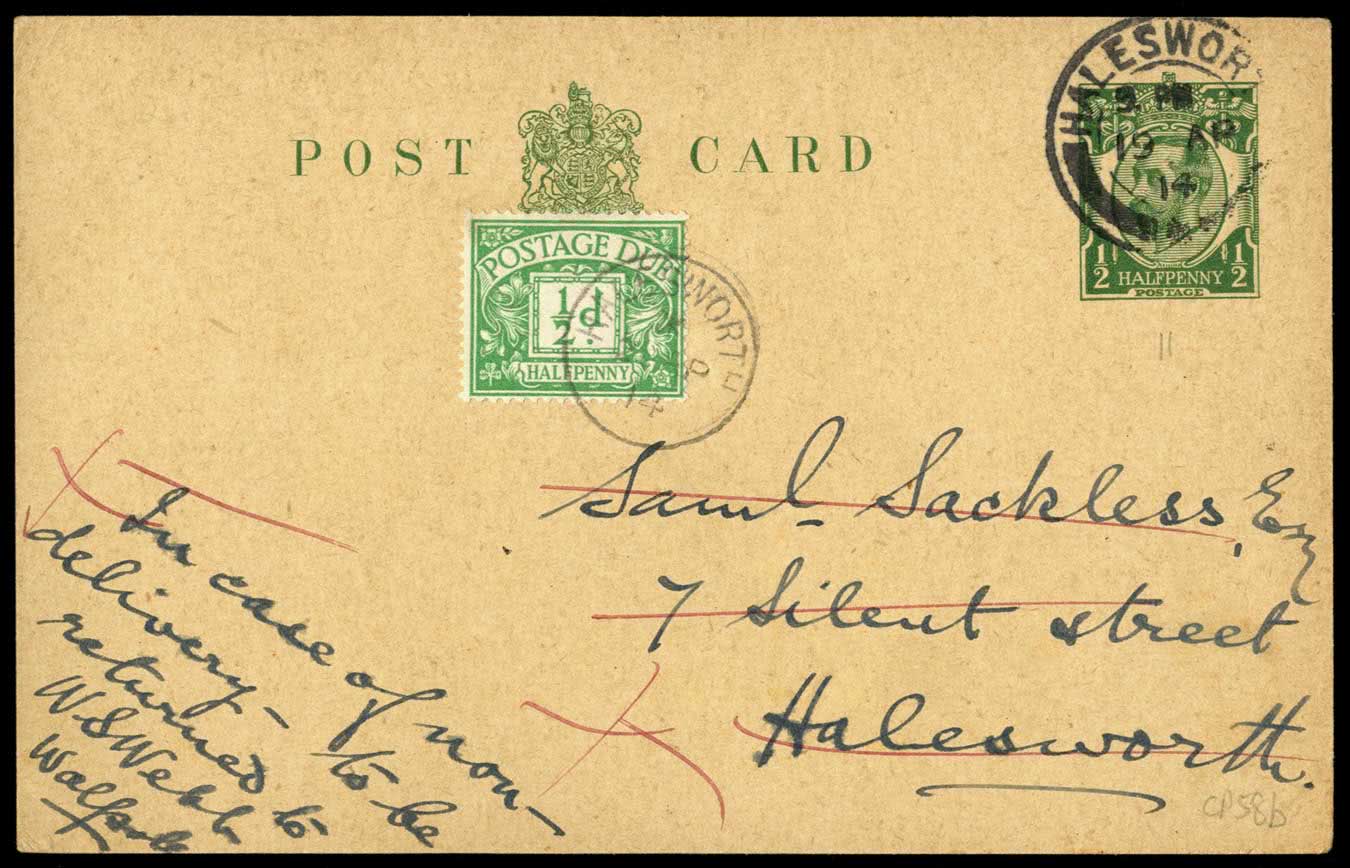 POST CARD
HALESWOR
19 AP
14
1/2 HALFPENNY 1/2
POSTAGE
POSTAGE DUE
1/2 d.
HALFPENNY
HALESWORTH
14
11
Saml. Sackless, Esq
7 Silent street
Halesworth.
In case of non-
delivery - to be
returned to
W S Webb
CP58b